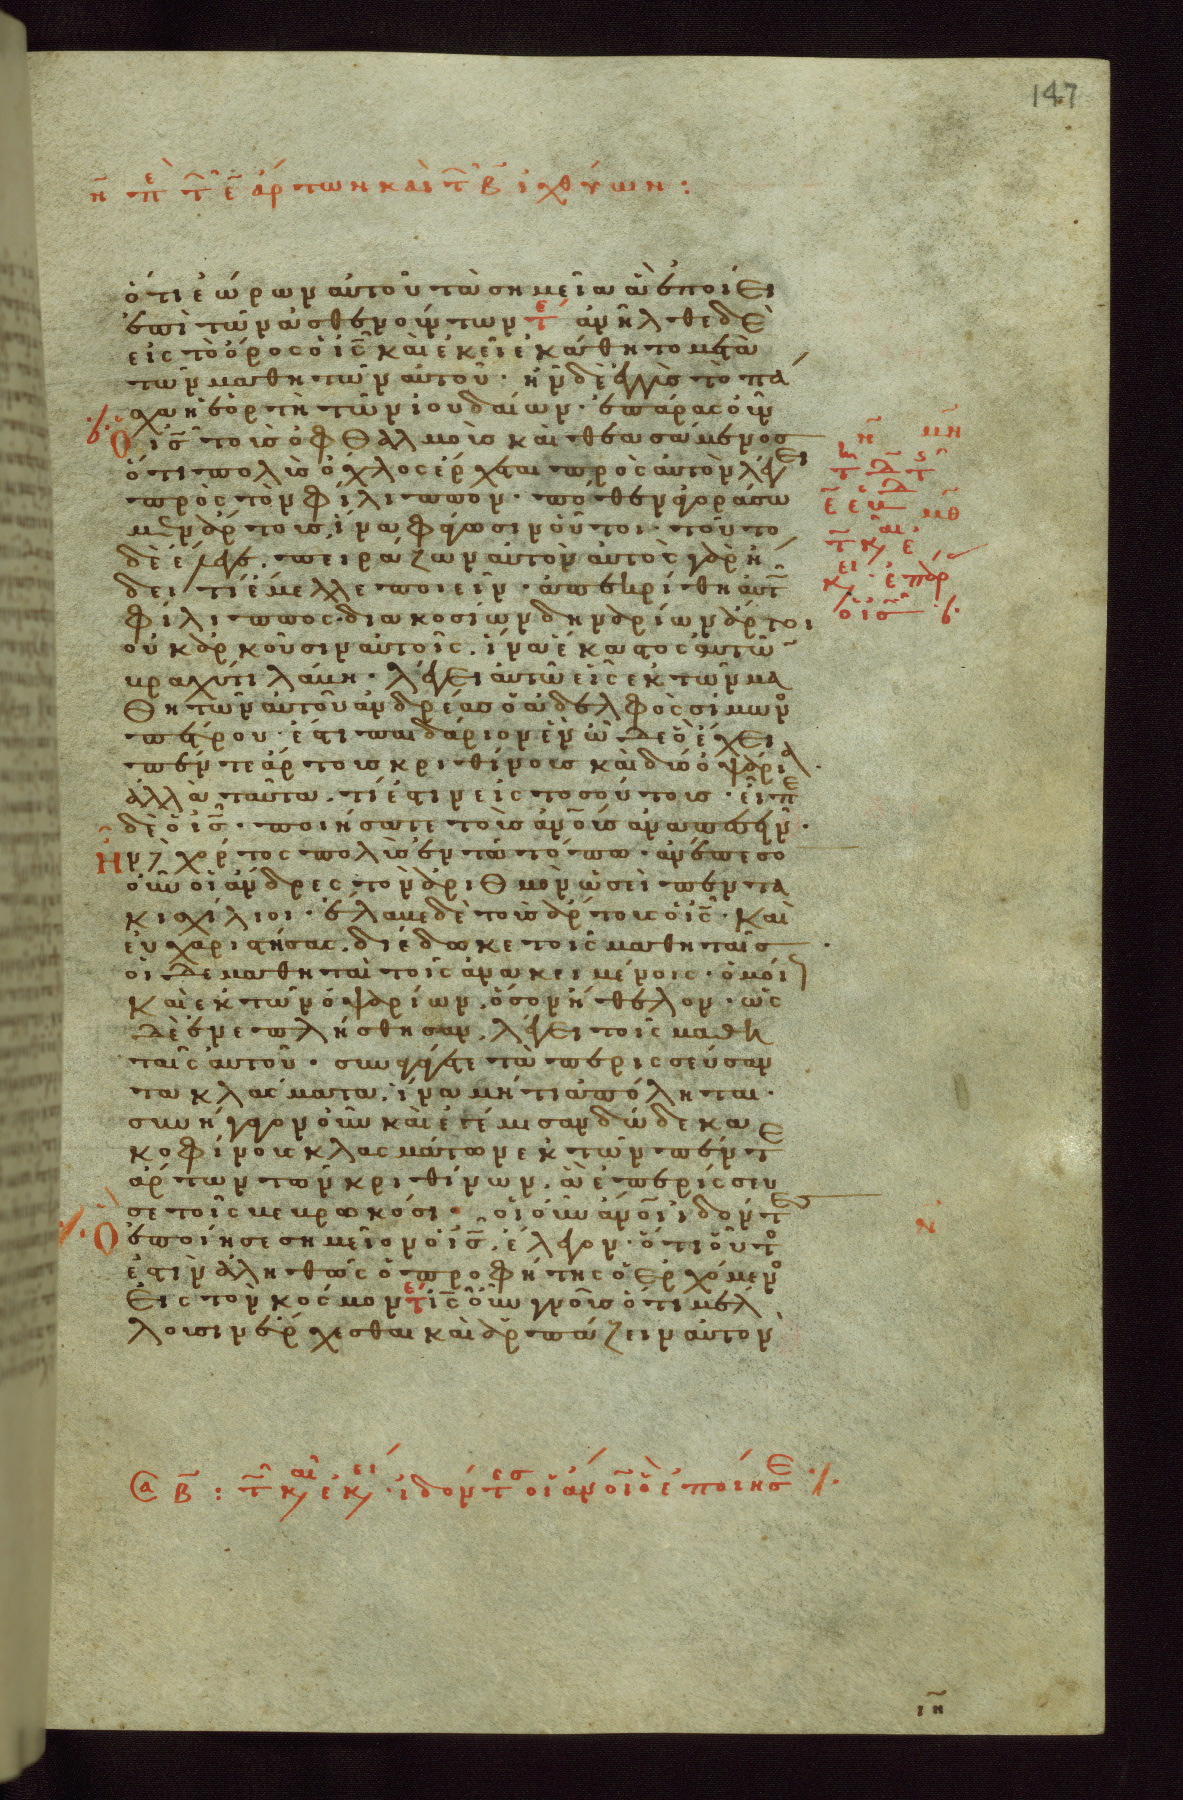 147
η̄ πε τ͂ ε̄ ἄρτων καὶ τ͂ β̄ ἰχθύων :
ὅτι ἑώρων αὐτοῦ τὰ σημεῖα ἃ ἐποίει
ἐπὶ τῶν ἀσθενούντων τέ ἀνῆλθε δὲ
εἰς τὸ ὄρος ὁ ις̅ καὶ ἐκεῖ ἐκάθητο μετὰ
τῶν μαθητῶν αὐτοῦ · ἦν δὲ ἐγγὺς τὸ πά
χα ἡ ἑορτὴ τῶν ἰουδαίων · ἐπάρας οὖν
Ὁ ις̅ τοὺς ὀφθαλμοὺς καὶ θεασάμενος
ὅτι πολὺς ὄχλος ἔρχεται πρὸς αὐτὸν λέγει
πρὸς τὸν φίλιππον · πόθεν ἀγοράσω
μεν ἄρτους ἵνα φάγωσιν οὗτοι · τοῦτο
δὲ ἔλεγε, πειράζων αὐτὸν αὐτὸς γὰρ ἤ
δει τί ἔμελλε ποιεῖν · ἀπεκρίθη αὐτ
φίλιππος · διακοσίων δηναρίων ἄρτοι
οὐκ ἀρκοῦσιν αὐτοῖς, ἵνα ἕκαστος αὐτῶ
βραχύ τι λάβη · λέγει αὐτῶ εἷς ἐκ τῶν μα
θητῶν αὐτοῦ ἀνδρέας ὁ ἀδελφὸς σίμων
πέτρου · ἔστι παιδάριον ἓν ὧδε ὃ ἔχει
πέντε ἄρτους κριθίνους καὶ δύο ὀψάρια ·
ἀλλὰ ταῦτα, τί ἐστιν εἰς τοσούτους · εἶπε
δὲ ὁ ις̅ · ποιήσατε τοὺς ἀνο̅υς ἀναπεσεῖν ·
Ἦν δὲ χόρτος πολὺς ἐν τῶ τόπω · ἀνέπεσο
οὖν οἱ ἄνδρες τὸν ἀριθμὸν ὡσεὶ πεντα
κισχίλιοι · ἔλαβε δὲ τοὺς ἄρτους ὁ ις̅ · καὶ
εὐχαριστήσας, διέδωκε τοῖς μαθηταῖς ·
οἱ δὲ μαθηταὶ τοῖς ἀνακειμένοις · ὁμοί
καὶ ἐκ τῶν ὀψαρίων, ὅσον ἤθελον · ὡς
δὲ ἐνεπλήσθησαν, λέγει τοῖς μαθη
ταῖς αὐτοῦ · συναγάγετε τὰ περισσεύσαν
τα κλάσματα, ἵνα μή τι ἀπόληται ·
συνήγαγον οὖν καὶ ἐγέμισαν δώδεκα
κοφίνους κλασμάτων ἐκ τῶν πέντε
ἄρτων τῶν κριθίνων, ἃ ἐπερίσσευ
σε τοῖς βεβρωκόσι · οἱ οὖν ἄνο̅ι ἰδόντες
Ὃ ἐποίησε σημεῖον ὁ ις̅, ἔλεγον · ὅτι οὗτο
ἐστιν ἀληθῶς ὁ προφήτης ὁ ἐρχόμενο
εἰς τὸν κόσμον τέ ις̅ οὖν γνοὺς ὅτι μέλ
λουσιν ἔρχεσθαι καὶ ἁρπάζειν αὐτὸν
η̄ μη
μθ
ν̄
Σα β̄ : τ͂ και ἐκει · ἰδόντες οἱ ἄνο̅ι ὃ ἐποίησε
ιη̄